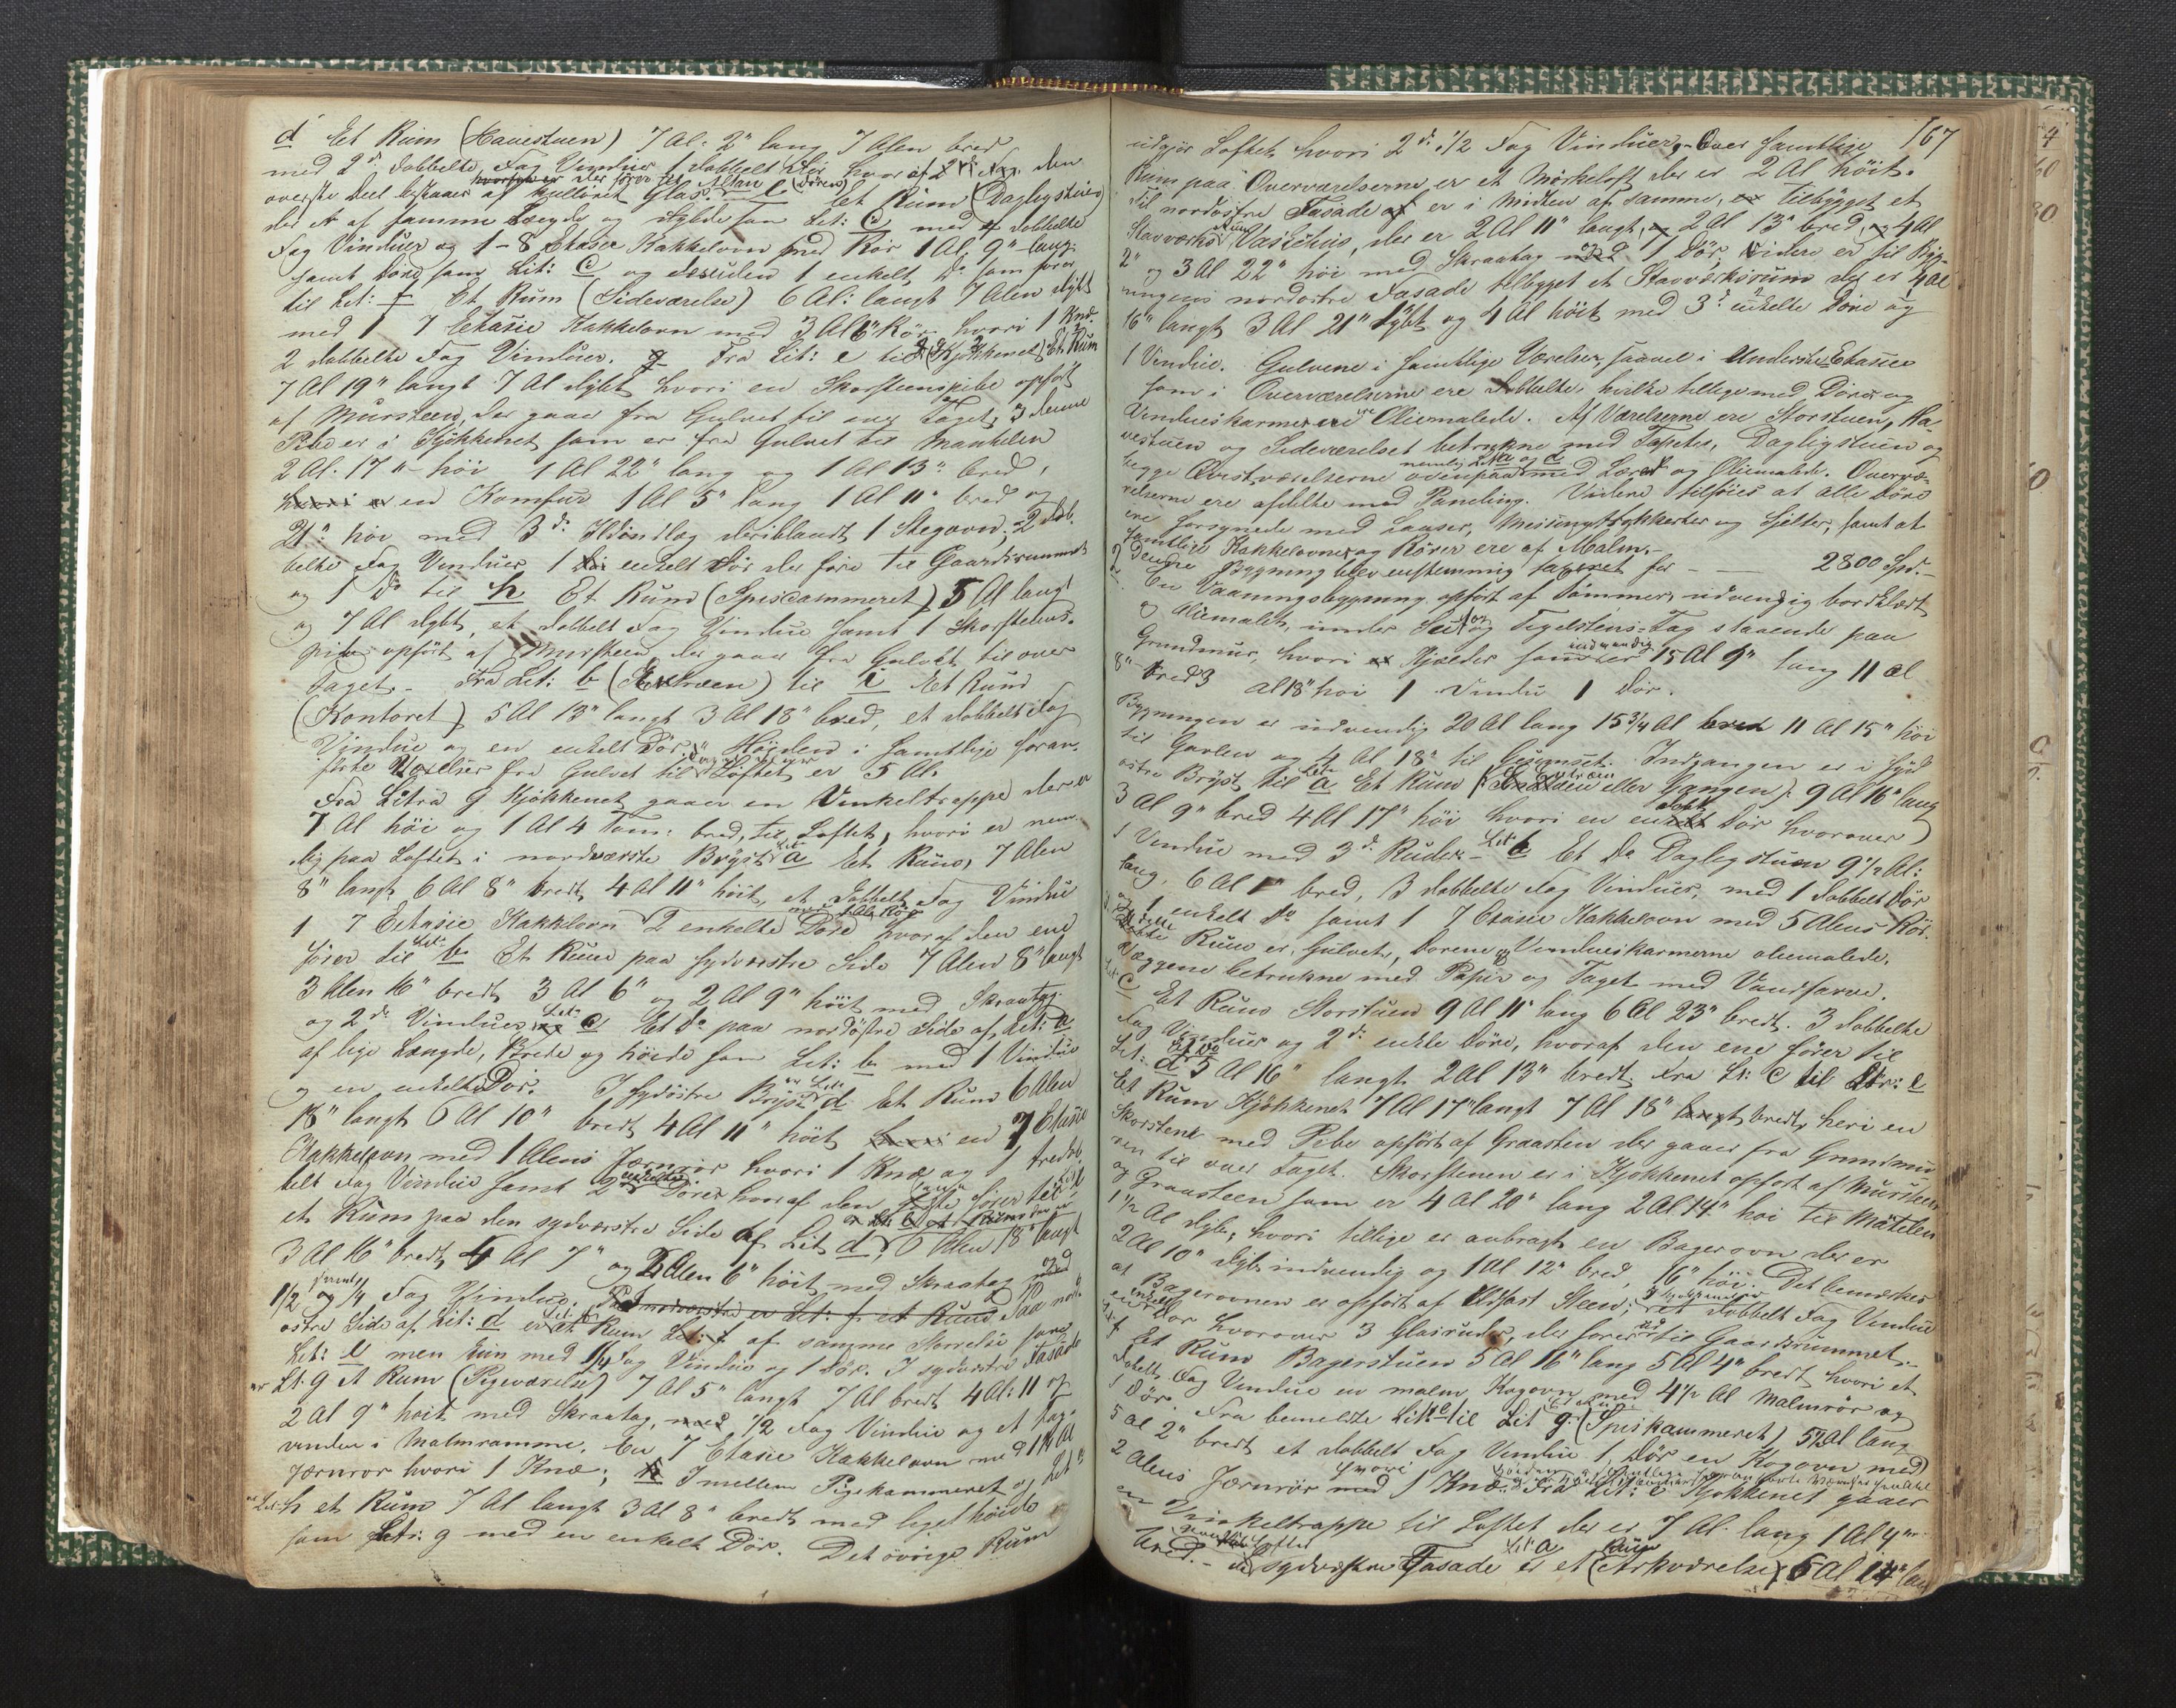 d Et Rum (Havestuen) 7 Al: 2" lang 7 Alen bred
med 2de dobbelte Fag Vinduer 1 dobbelt Dør hvoraf den
hvorfra er der fører til Altan (Døren)
overste Deel bestaaer af kulleurt Glas. e Et Rum (Dagligstuen)
der er af samme Længde og dybde som Lit: c med 4 dobbelte
Fag Vinduer og 1 - 8 Etasies Kakkelovn med Rør 1 Al 9" lang
samt Døre som Lit: c og desuden 1 enkelt do som fører
til Lit: f Et Rum (Sideværelse) 6 Al: langt 7 Alen dybt
med 1 7 Etasie Kakkelovn med 3 Al 6" Rør hvori 1 Knæ
2 dobbelte Fag Vinduer. g Fra Lit: e til g (Kjøkkenet) Et Rum
7 Al 19" langt 7 Al dybt hvori en Skorsteenspibe opført
af Mursteen, der gaaer fra Gulvet til over Taget, I denne
Pibe er i Kjøkkenet som er fra Gulvet til Mantelen
2 Al. 17" høi 1 Al 22" lang og 1 Al 13" bred,
hvori er en Komfur 1 Al 5" lang 1 Al 11" bred og
21" høi med 3de Ildindlæg deriblandt 1 Stegovn, 2 dob-
belte Fag Vinduer 1 enkelt Dør der føre til Gaardsrummet
og 1 Do til h Et Rum (Spiscammeret) 5 Al langt
og 7 Al dybt, et dobbelt Fag Vindue samt 1 Skorsteens-
pibe opført af Mursteen der gaaer fra Gulvet til over
Taget. - Fra Lit: b (Extræen) til i Et Rum
(Kontoret) 5 Al 13" langt 3 Al 18" bred, et dobbelt Fag
Vindue og en enkelt Dør. Høiden i samtlige foran-
førte Værelser fra Gulvet til Loftet er 5 Al.
Fra Litra g Kjøkkenet gaaer en Vinkeltrappe der er
7 Al høi og 1 Al 4 Tom: bred, til Loftet, hvori er nem-
lig paa Loftet i nordvestre Bryst Lit a Et Rum, 7 Alen
8" langt 6 Al 8" bredt 4 Al 11" høit, et dobbelt Fag Vindue
1 7 Eetasie Kakkelovn med 1 Al Rør 2 enkelte Døre hvoraf den ene
fører til Lit: b Et Rum paa sydvestre Side 7 Alen 8" langt
3 Alen 16" bredt 3 Al 6" og 2 Al 9" høit med Skraatag
og 2de Vinduer, Lit: c Et do paa nordøstre Side af Lit: a
af lige Længde, Brede og høide som Lit: b med 1 Vindue
og en enkelt Dør. I sydøstre Bryst er Lit: d Et Rum 6 Alen
18" langt 6 Al 10" bredt 4 Al 11" høit hvori en 7 Etasie
Kakkelovn med 1 Alens Jernrør hvori 1 Knæ og 1 tredob-
belt Fag Vindue samt 2 enkelte Døre hvoraf den ene fører til Lit
et Rum paa den sydvestre Side af Lit d, 6 Alen 18" langt
3 Al 16" bredt, 4 Al 7" og 2 Alen 6" høit med Skraatag
1/2 og 1/4 Fag Vindue. Paa nordvestre er Lit: f et Rum Paa nord-
østre Side af Lit: d er Lit: f et Rum af samme Størrelse som
Lit: e men kun med 1/4 Fag Vindue og 1 Dør. I sydvestre Fasade
er Lt. g et Rum (Pigeværelse) 7 Al 5" langt 7 Al bredt 4 Al: 11" og
2 Al 9" høit med Skraatag, med 1/2 Fag Vindue og et Tag-
vindue i Malmramme. En 7 Etasie Kakkelovn med 1 1/4 Al
Jernrør hvori 1 Knæ; h Imellem Pigekammeret og Lit:
er Lit: h et Rum 7 Al langt 3 Al 8" bredt med liget høide
som Litr: g med en enkelt Dør. Det øvrige Rum
167
udgjør Loftet hvori 2de 1/2 Fag Vinduer. - Over samtlige
Rum paa Overværelserne er et Mørkeloft der er 2 Al høit.
Til nordøstre Fasade er i Midten af samme, tilbygget et
Stavværks Vaskehus, der er 2 Al 11" langt, 2 Al 13" bred, 4 Al
2" og 3 Al 22" høi med Skraatag og 1 Dør. Videre er til Byg-
ningens nordøstre Fasade tilbygget et Stavværksrum der er 4 Al
16" langt 3 Al 21" dybt og 4 Al høit med 3de enkelte Døre og
1 Vindue. Gulvene i samtlige Værelser, saavel i Underste Etasie
som i Overværelserne ere dobbelte, hvilke tillige med Døre og
Vindueskarmer ere Oliemalede. Af Værelserne ere Storstuen, Ha-
vestuen og Sideværelset betrukne med Tapeter, Dagligstuen og
begge Qvistværelserne ovenpaa nemlig Lit a og d med Lærred og Oliemalede. Overvæ-
relserne ere afdelte med Paneling. Videre tilføies at alle Døre
ere forsynede med Laaser, Messingtrykkerter og Hjelter, samt at
samtlige Kakkelovne og Rører ere af Malm. -
Denne Bygning blev eenstemmig taxeret for - - 2800 Spd. -
2 En Vaaningsbygning opført af Tømmer, udvendig bordklædt
og oliemalet, under Sut og Tegelsteens-Tag staaende paa
Grundmur, hvori Kjælder som er indvendig 15 Al 9" lang 11 Al
8" bred 3 Al 18" høi 1 Vindu 1 Dør.
Bygningen er udvendig 20 Al lang 15 3/4 Al bred 11 Al 15" høi
til Gavlen og 4 Al 18" til Gesimset. Indgangen er i syd-
østre Bryst til Lit: a Et Rum (Extræen eller Gangen) 9 Al 16" lang
3 Al 9" bred 4 Al 17" høi hvori en dobb Dør hvorover
1 Vindue med 3de Ruder - Lit b Et Do Dagligstuen 9 1/2 Al:
lang, 6 Al 1" bred, 3 dobbelte Fag Vinduer, med 1 dobbelt Dør
og 1 enkelt do samt 1 7 Etasies Kakkelovn med 5 Alens Rør.
I dette Rum er Gulvet, Dørene og Vindueskarmerne oliemalede.
Væggene betrukne med Papir og Taget med Vandfarve.
Lit: c Et Rum Storstuen 9 Al 11" lang 6 Al 23" bredt. 3 dobbelte
Fag Vinduer og 2de enkle Døre, hvoraf den ene fører til
Lit: d Et Do 5 Al 16" langt 2 Al 13" bredt. Fra Lt: c til Litr: e
Et Rum Kjøkkenet 7 Al 17" langt 7 Al 18" bredt, heri en
Skorsteen med Pibe opført af Graasten der gaaer fra Grundmu-
ren til over Taget. Skorstenen er i Kjøkkenet opført af Mursteen
og Graasteen som er 4 Al 20" lang 2 Al 14" høi til Mantelen
1 1/2 Al dyb, hvori tillige er anbragt en Bagerovn der er
2 Al 10" dyb indvendig og 1 Al 12" bred, 16" høi. Det bemærkes
at Bagerovnen er opført af Ildfast Steen; I Kjøkkenet er et dobbelt Fag Vindue
en enkelt Dør hvorover 3 Glasruder, der fører ud til Gaardsrummet. -
Lit: f Et Rum Bagerstuen 5 Al 16" lang 5 Al 4" bredt hvori et
dobelt Fag Vindue en malm Kogovn med 4 1/2 Al Malmrør og
1 Dør. Fra bemeldte Lit e til Lit g. Et Rum (Spiskammeret) 5 1/2 Al lang
5 Al 2" bredt et dobbelt Fag Vindue 1 Dør en Kogovn med
2 Alens Jernrør hvori 1 Knæ. Fra Lit: e Kjøkkenet gaaer
en Vinkeltrappe til Loftet der er 7 Al. lang 1 Al 4"
bred. - I sydvestre Fasade er Lit a et Rum (Arkværelse) 5 Al 14" lang